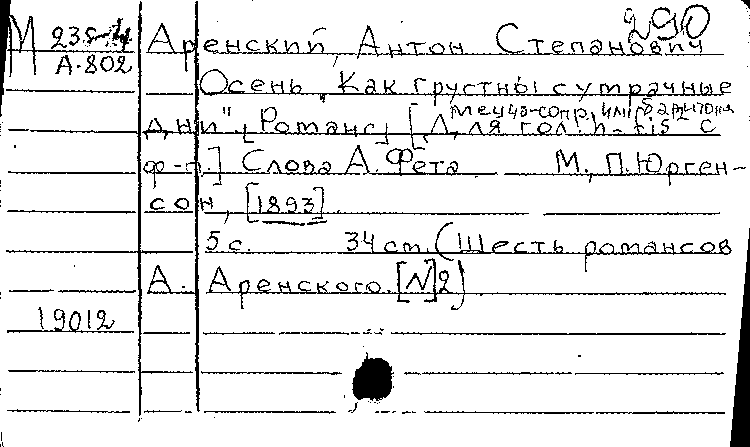 290
М 235-4 Аренский, Антон Степанович
А-802 Осень „Как грустны сумрачные
меццо-сопр. или баритона
дни". [Романс] [Для гол. h-fis с
ф-п.] Слова А. Фета М., П. Юрген-
сон, [1893].
5 с. 34 см. (Шесть романсов
А. Аренского. [№]2)
19012